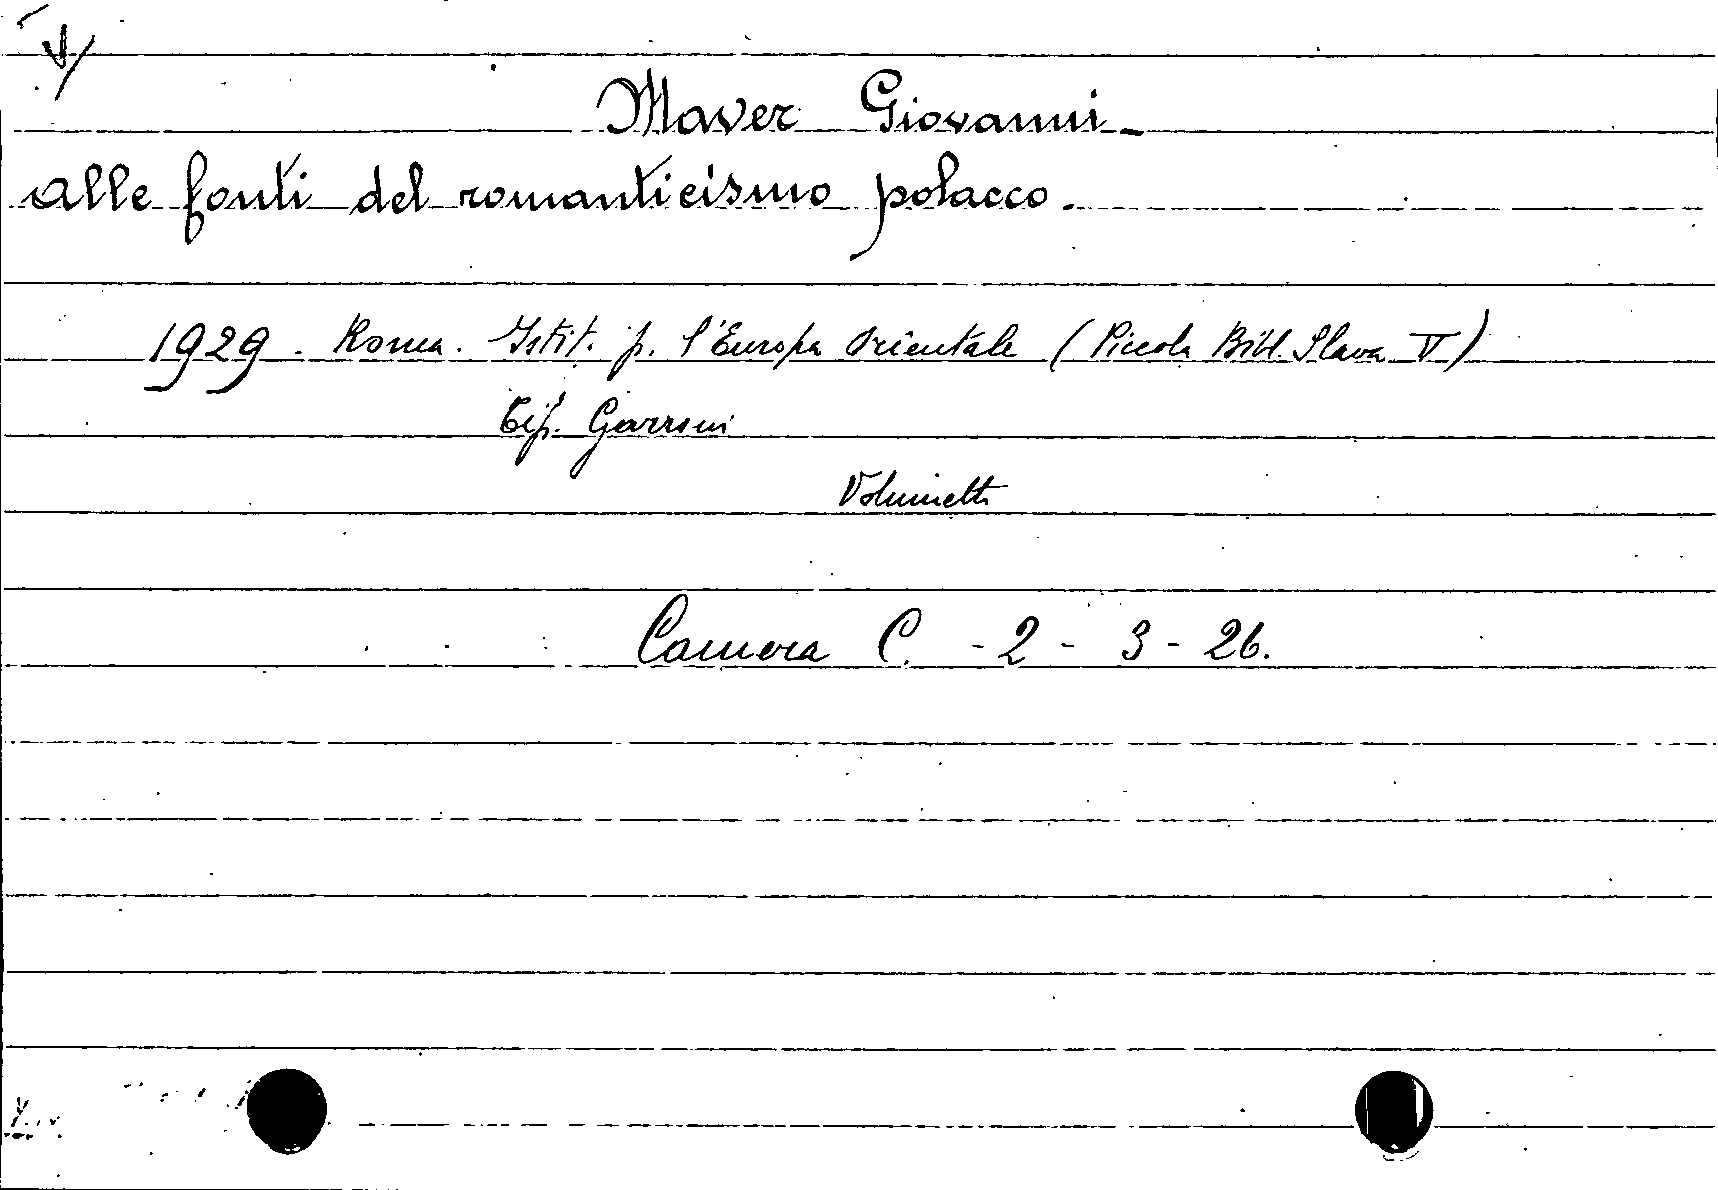 Maver Giovanni -
Alle fonti del romanticismo polacco.
1929. Roma. Istit. p. l'Europa Orientale (Piccola Bibl. Slava V)
Tip. Garroni
Volumetti
Camera C. - 2 - 3 - 26.